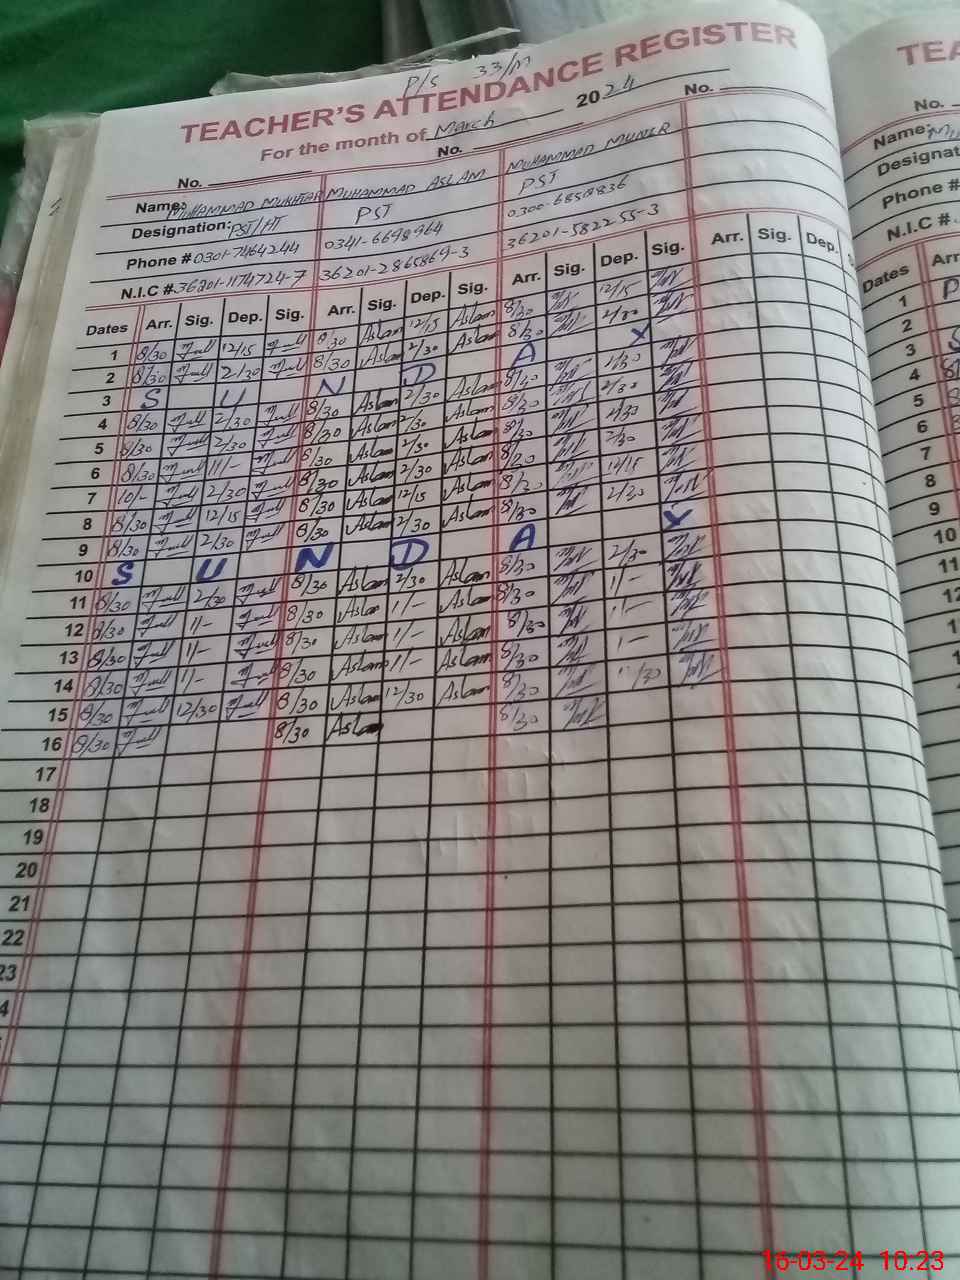 P/S 33/M
TEACHER'S ATTENDANCE REGISTER
For the month of March 2024
No. No. No.
Name: MUHAMMAD MUKHTAR MUHAMMAD ASLAM MUHAMMAD MUNIR
Designation: PST/HT PST PST
Phone # 0301-7464244 0341-6698964 0300-6858836
N.I.C #. 36201-1174724-7 36201-2865869-3 36201-5822255-3
Dates Arr. Sig. Dep. Sig. Arr. Sig. Dep. Sig. Arr. Sig. Dep. Sig. Arr. Sig. Dep.
1 8/30 12/15 8/30 Aslam 12/15 Aslam 8/30 12/15
2 8/30 2/30 8/30 Aslam 2/30 Aslam 8/30 2/30
3 S U N D A Y
4 8/30 2/30 8/30 Aslam 2/30 Aslam 8/30 2/30
5 8/30 2/30 8/30 Aslam 2/30 Aslam 8/30 2/30
6 8/30 11/- 8/30 Aslam 2/30 Aslam 8/30 2/30
7 10/- 2/30 8/30 Aslam 2/30 Aslam 8/30 2/30
8 8/30 12/15 8/30 Aslam 12/15 Aslam 8/30 12/15
9 8/30 2/30 8/30 Aslam 2/30 Aslam 8/30 2/30
10 S U N D A Y
11 8/30 2/30 8/30 Aslam 2/30 Aslam 8/30 2/30
12 8/30 1/- 8/30 Aslam 1/- Aslam 8/30 1/-
13 8/30 1/- 8/30 Aslam 1/- Aslam 8/30 1/-
14 8/30 1/- 8/30 Aslam 1/- Aslam 8/30 1/-
15 8/30 12/30 8/30 Aslam 12/30 Aslam 8/30 12/30
16 8/30 8/30 Aslam 8/30
17
18
19
20
21
22
23
TEA
No.
Name: MU
Designat
Phone #
N.I.C #.
Dates Arr
1 P
2
3 S
4
5
6
7
8
9
10
11
16-03-24 10.23